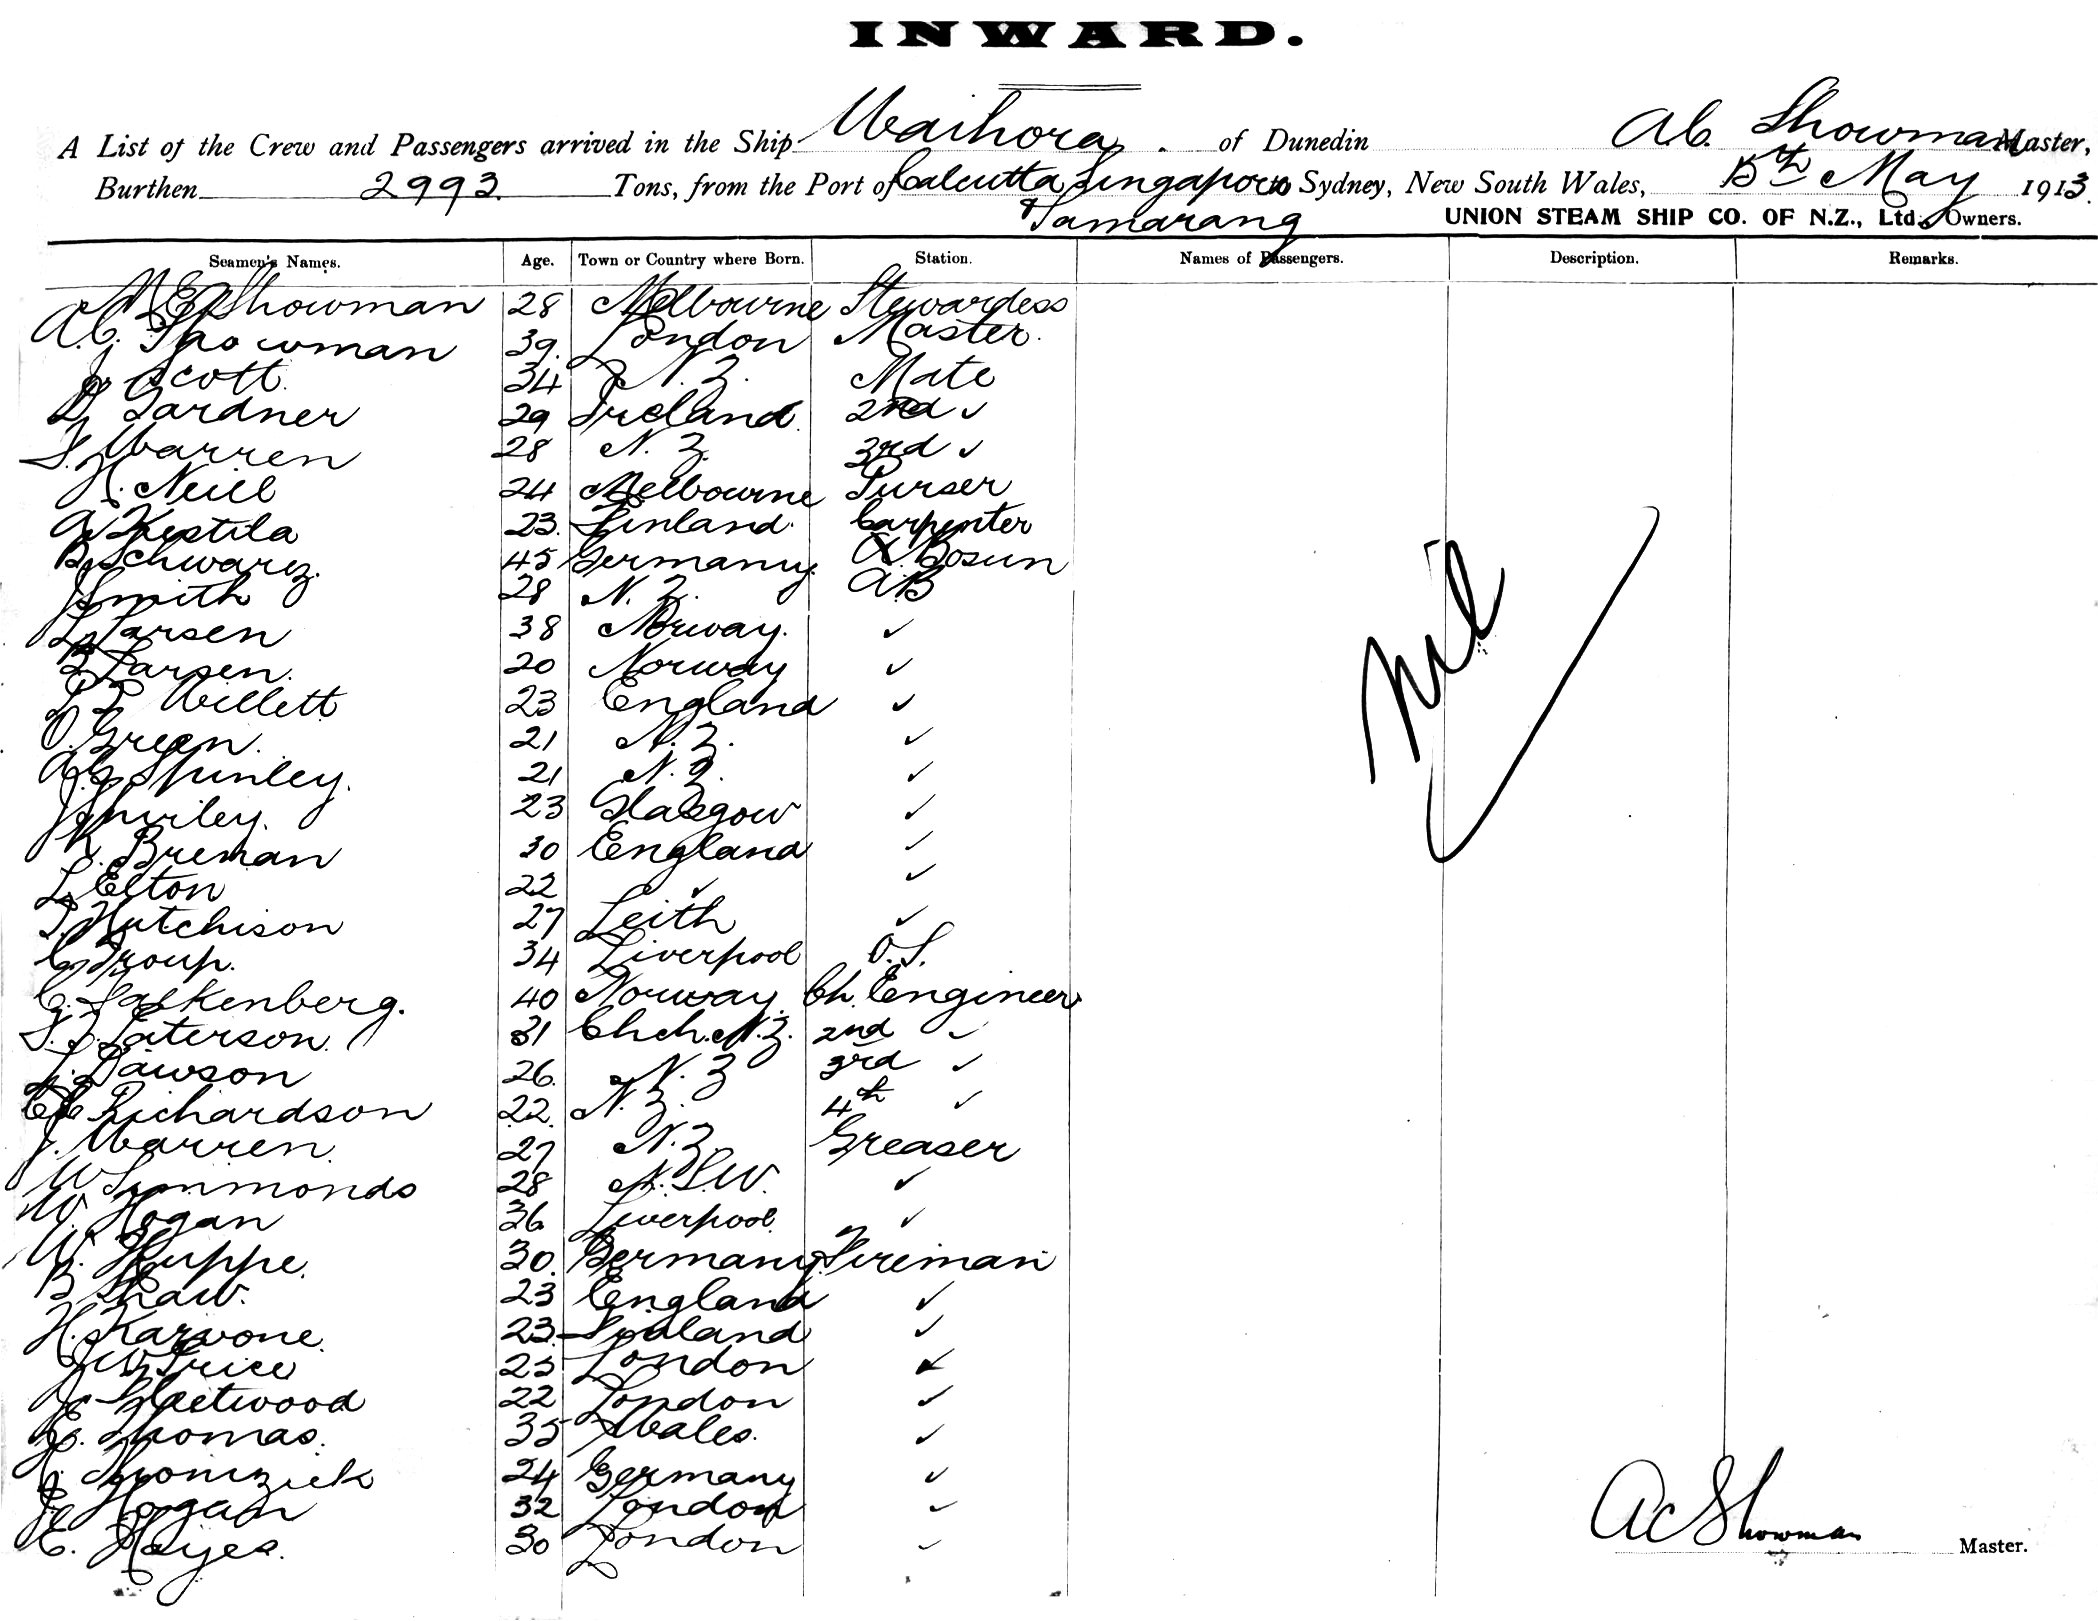 INWARD.
A List of the Crew and Passengers arrived in the Ship Waihora. of Dunedin A.C. Showman Master,
Burthen 2993 Tons, from the Port of Calcutta, Singapore Sydney, New South Wales, 5th May 1913.
& Samarang UNION STEAM SHIP CO. OF N.Z., Ltd., Owners.
Seamen's Names. Age. Town or Country where Born. Station. Names of Passengers. Description. Remarks.
Showman 28 Melbourne Stewardess
A.C. Showman 39. London Master.
Scott. 34 N.Z. Mate
Gardner 29 Ireland. 2nd ✓
Warren 28 N.Z. 3rd ✓
Neill 24 Melbourne Purser
Kestila 23. Finland. Carpenter
Schwarz. 45 Germany. Bosun
J Smith 28 N.Z. AB
Larsen 38 Norway. ✓
Larsen. 20 Norway ✓
Willett 23 England ✓
O. Green. 21 N.Z. ✓
Spinley. 21 N.Z. ✓
23 Glasgow ✓
Breman 30 England ✓
L. Elton 22 ✓ ✓
Hutchison 27 Leith ✓
Troup. 34 Liverpool O.S.
C. Falkenberg. 40 Norway. Ch. Engineer
Paterson. 31 Chch. N.Z. 2nd ✓
Dawson 26. N.Z 3rd ✓
Richardson 22. N.Z. 4th ✓
J. Warren. 27 N.Z. Greaser
W Simmonds 28 N.S.W. ✓
W. Hogan 36 Liverpool. ✓
W. Huppe. 30. Germany. Fireman
B Shaw. 23 England ✓
H. Karvone. 23. Finland ✓
J W Price 25 London ✓
Fleetwood 22 London ✓
Thomas. 35 Wales. ✓
24 Germany ✓
Hogan 32 London ✓
E. Hayes. 30 London ✓
Nil
A C Showman Master.